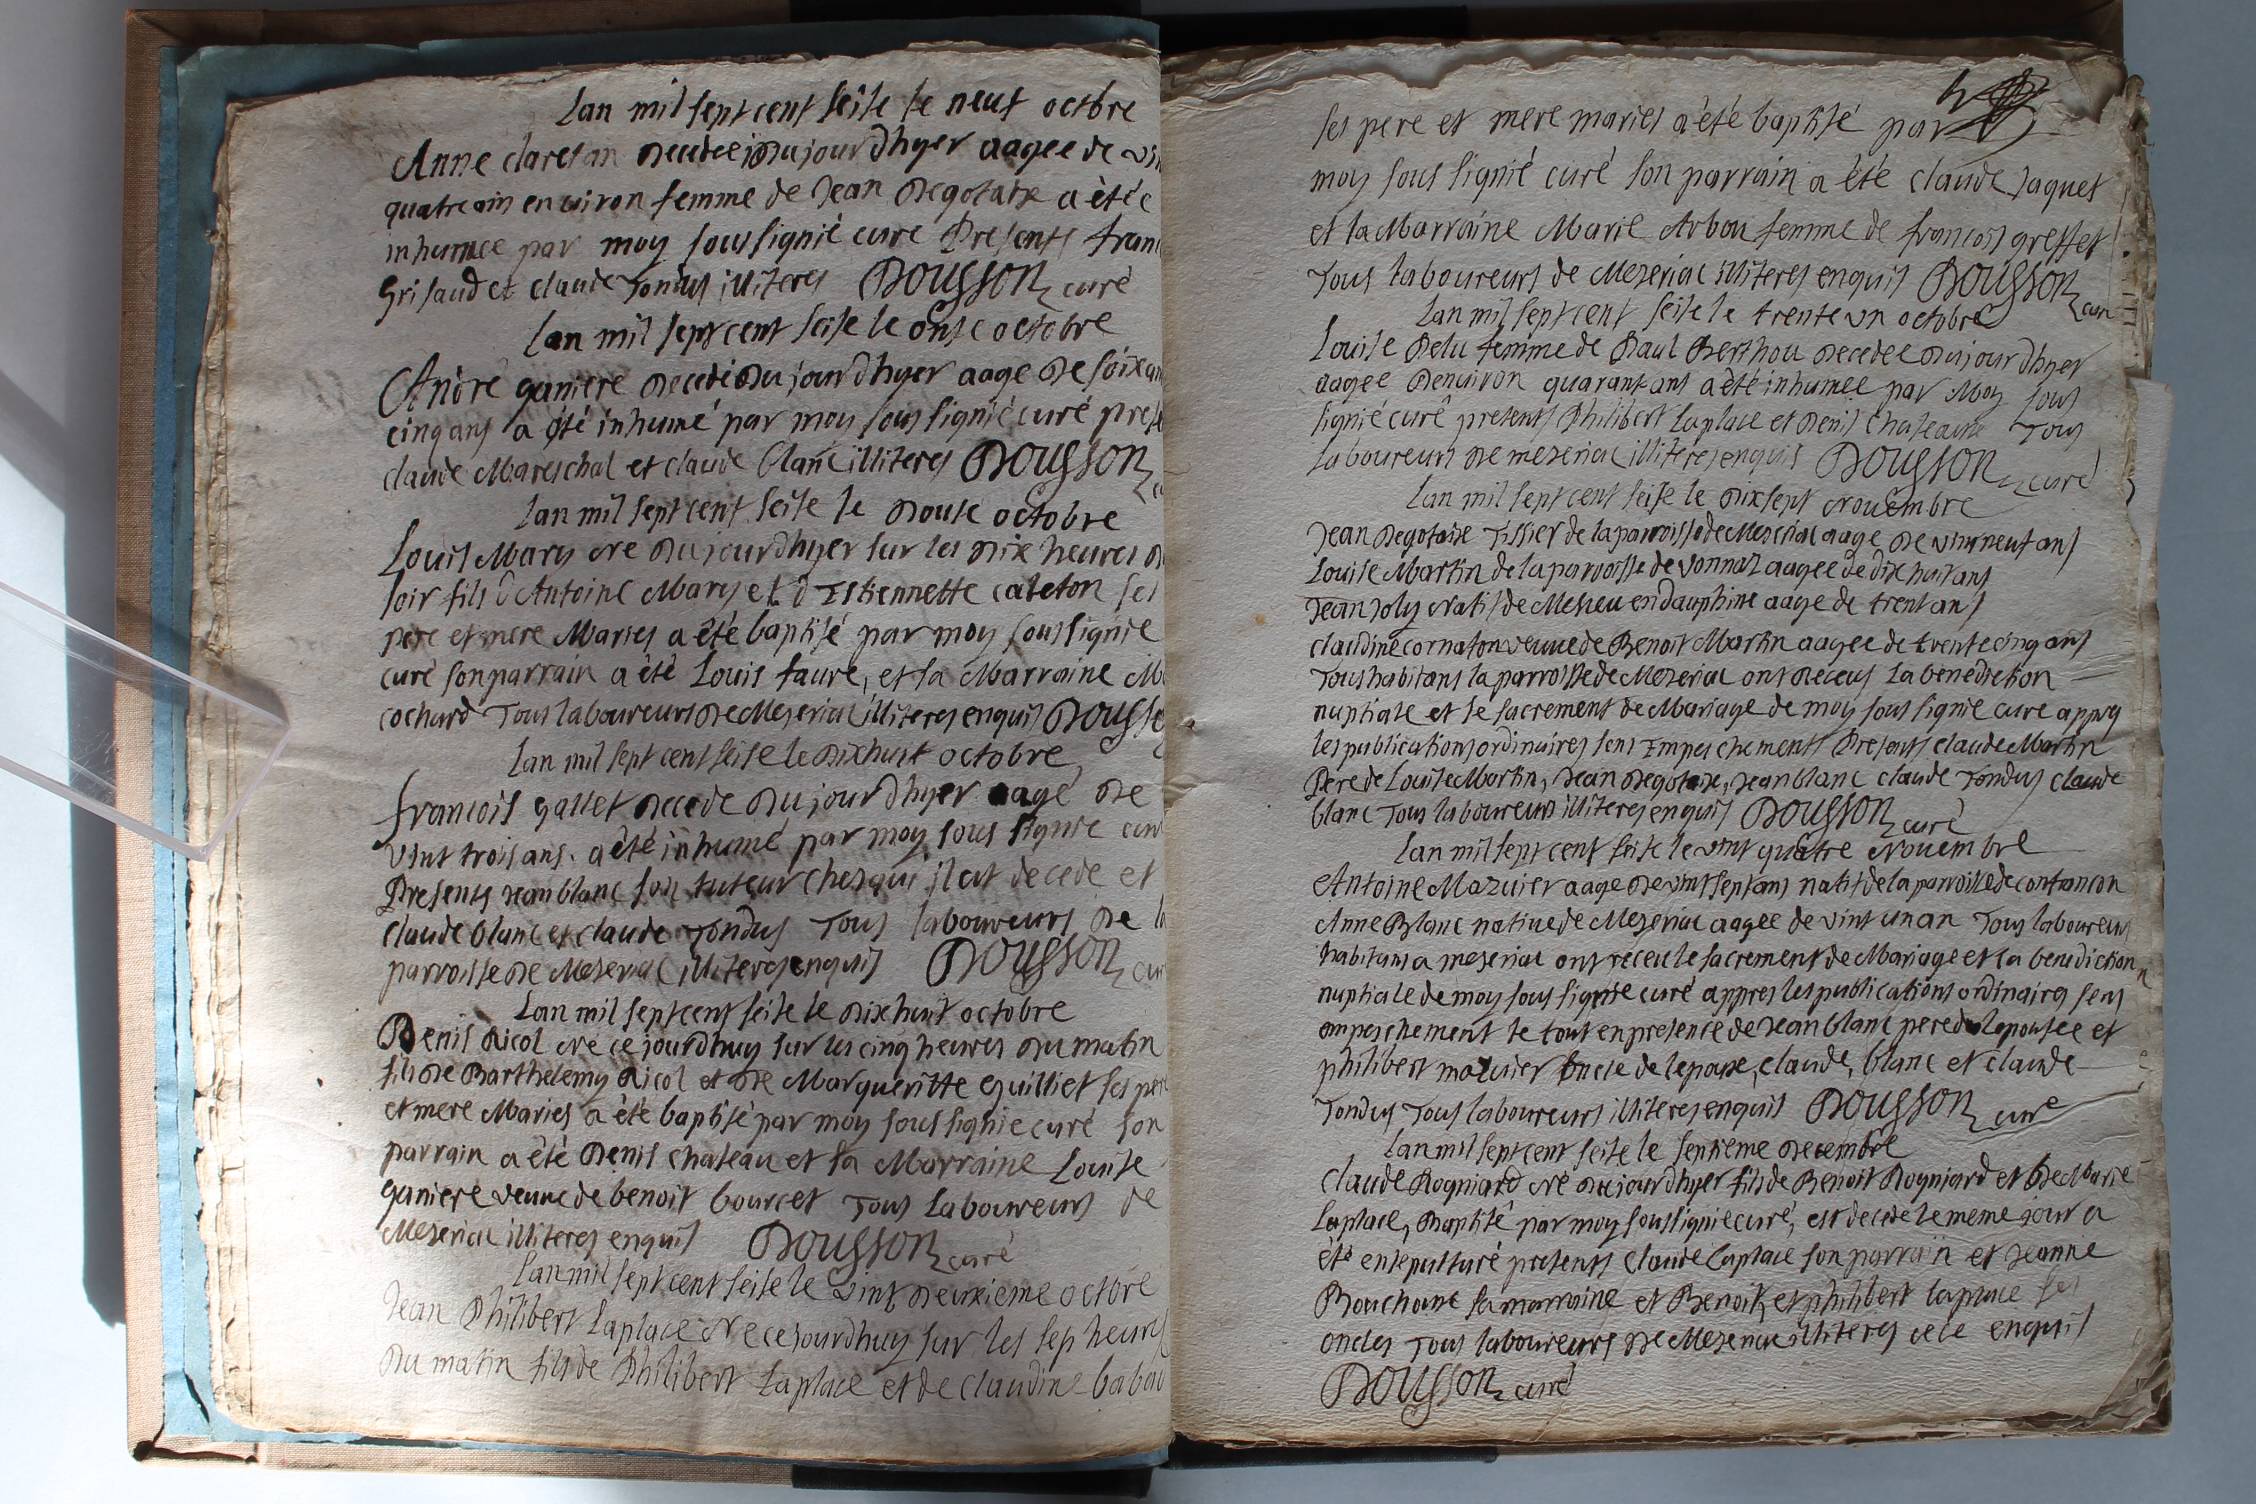 Lan mil sept cent seise le neuf octbre
Anne claresan decedee dujourdhyer aagee de vin
quatre ans environ femme de Jean Degotaix a étée
inhumee par moy soussignié curé Presents fran
Grisaud et claude Tondus illiteres Dousson curé
Lan mil sept cent seise le onse octobre
André ganiere decedé dujourdhyer aage de soixan
cinq ans a été inhumé par moy sous signié curé prese
claude Mareschal et claude blanc illiteres Dousson
Lan mil sept cent seise le douse octobre
Louis Mary né dujourdhyer sur les dix heures d
soir fils d Antoine Mary et d Estiennette cateton ses
pere et mere Maries a été baptisé par moy soussignie
curé son parrain a été Louis faure, et la Marraine M
cochard Tous laboureurs de Meseriac illiteres enquis Dousso
Lan mil sept cent seise le dixhuit octobre
francois gallet decede dujourdhyer aagé de
vint trois ans. a été inhumé par moy sous signie cur
Presents jean blanc son tuteur ches qui il est decede et
claude blanc et claude Tondus Tous laboureurs de la
parroisse de Meseriac illiteres enquis Dousson cur
Lan mil sept cent seise le dixhuit octobre
Denis Ricol né ce jourdhuy sur les cinq heures du matin
fils de Barthelemy Ricol et de Margueritte eguilliet ses per
et mere Maries a été baptisé par moy soussignie curé son
parrain a été Denis chateau et la Marraine Louise
ganiere veuve de benoit bourcet Tous laboureurs de
Meseriac illiteres enquis Dousson curé
Lan mil sept cent seise le vint deuxieme octbre
Jean Philibert Laplace né cejourdhuy sur les sep heures
du matin fils de Philibert Laplace et de claudine baba
ses pere et mere maries a été baptisé par
moy sous signié curé son parrain a été claude Jaquet
et la Marraine Marie Arbou femme de francois greffet
Tous laboureurs de Meseriac illiteres enquis Dousson cur
Lan mil sept cent seise le trente un octobre
Louise Pelu femme de Paul Berthou decedee dujourdhyer
aagee denviron quarant ans a été inhumee par Moy sous
signié curé presents Philibert Laplace et Denis Chateau Tous
laboureurs de meseriac illiteres enquis Dousson curé
Lan mil sept cent seise le dixsept Novembre
Jean Degotaix Tissier de la parroisse de Meseriac aage de vint neuf ans
Louise Martin de la parroisse de vonnaz aagee de dix huit ans
Jean Joly Natif de Mesieu en dauphine aage de trent ans
claudine cornaton veuve de Benoit Martin aagee de trente cinq ans
Tous habitans la parroisse de Meseriac ont receus la benediction
nuptiale et le sacrement de Mariage de moy sous signie curé appry
les publications ordinaires sens Empeschements Presents claude Martin
Pere de Louise Martin, Jean Degotaix, Jean blanc claude Tondus claude
blanc Tous laboureurs illiteres enquis Dousson curé
Lan mil sept cent seise le vint quatre Novembre
Antoine Mazuier aage de vint sept ans natif de la parroisse de confrancon
Anne Blanc native de Meseriac aagee de vint un an Tous laboureurs
habitans a meseriac ont receu le sacrement de Mariage et la benediction
nuptiale de moy sous signie curé appres les publications ordinaires sens
empeschement le tout en presence de Jean blanc pere de lepousee et
philibert mazuier oncle de lepoux, claude, blanc et claude
Tondus Tous laboureurs illiteres enquis Dousson curé
Lan mil sept cent seise le septieme decembre
Claude Rogniard né dujourdhyer fils de Benoit Rogniard et de Marie
Laplace, Baptisé par moy soussignie curé, est decede le meme jour a
été ensepulturé presents Claude Laplace son parrain et Jeanne
Bouchoux sa marraine et Benoit et philibert laplace ses
oncles Tous laboureurs de Meseriac illiteres de ce enquis
Dousson curé